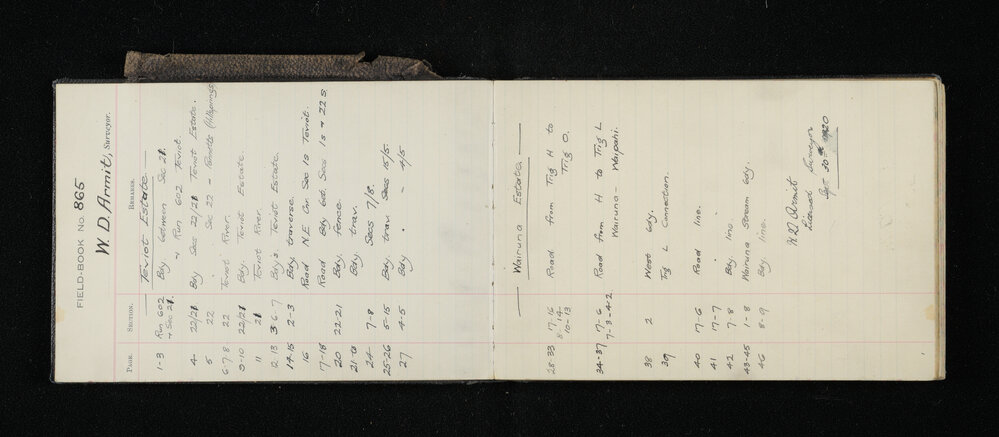 FIELD-BOOK No. 865
W. D. Armit, Surveyor.
PAGE. SECTION. REMARKS.
Teviot Estate
1-3 Run 602 & Sec 21. Bdy between Sec 21.
& Run 602 Teviot.
4- 22/21 Bdy Secs 22/21 Teviot Estate.
5 22 " Sec 22 -
6-7-8 22 Teviot River.
9-10 22/21 Bdy. Teviot Estate.
11 21 Teviot River.
12-13 3 6 7 Bdy's Teviot Estate.
14-15 2-3 Bdy traverse.
16 Road N.E Cor. Sec 1s Teviot.
17-18 Road Bdy bet. Secs 1s & 22s.
20 22-21 Bdy. fence.
21-23 Bdy. trav.
24- 7-8 Secs 7/8.
25-26 5-15 Bdy. trav. Secs 15/5
27 4-5 Bdy " - 4/5
Wairuna Estate
28-33 17-16 Road from Trig H to
8-14- Trig O.
10-13
34-37 17-6 Road from H to Trig L
7-3-4-2 Wairuna - Waipahi.
38 2 West bdy.
39 Trig L Connection.
40 17-6 Road line.
41 17-7 "
42 7-8 Bdy. line.
43-45 1-8 Wairuna Stream bdy.
46 8-9 Bdy line.
W D Armit
Licensed Surveyor
30th 1920